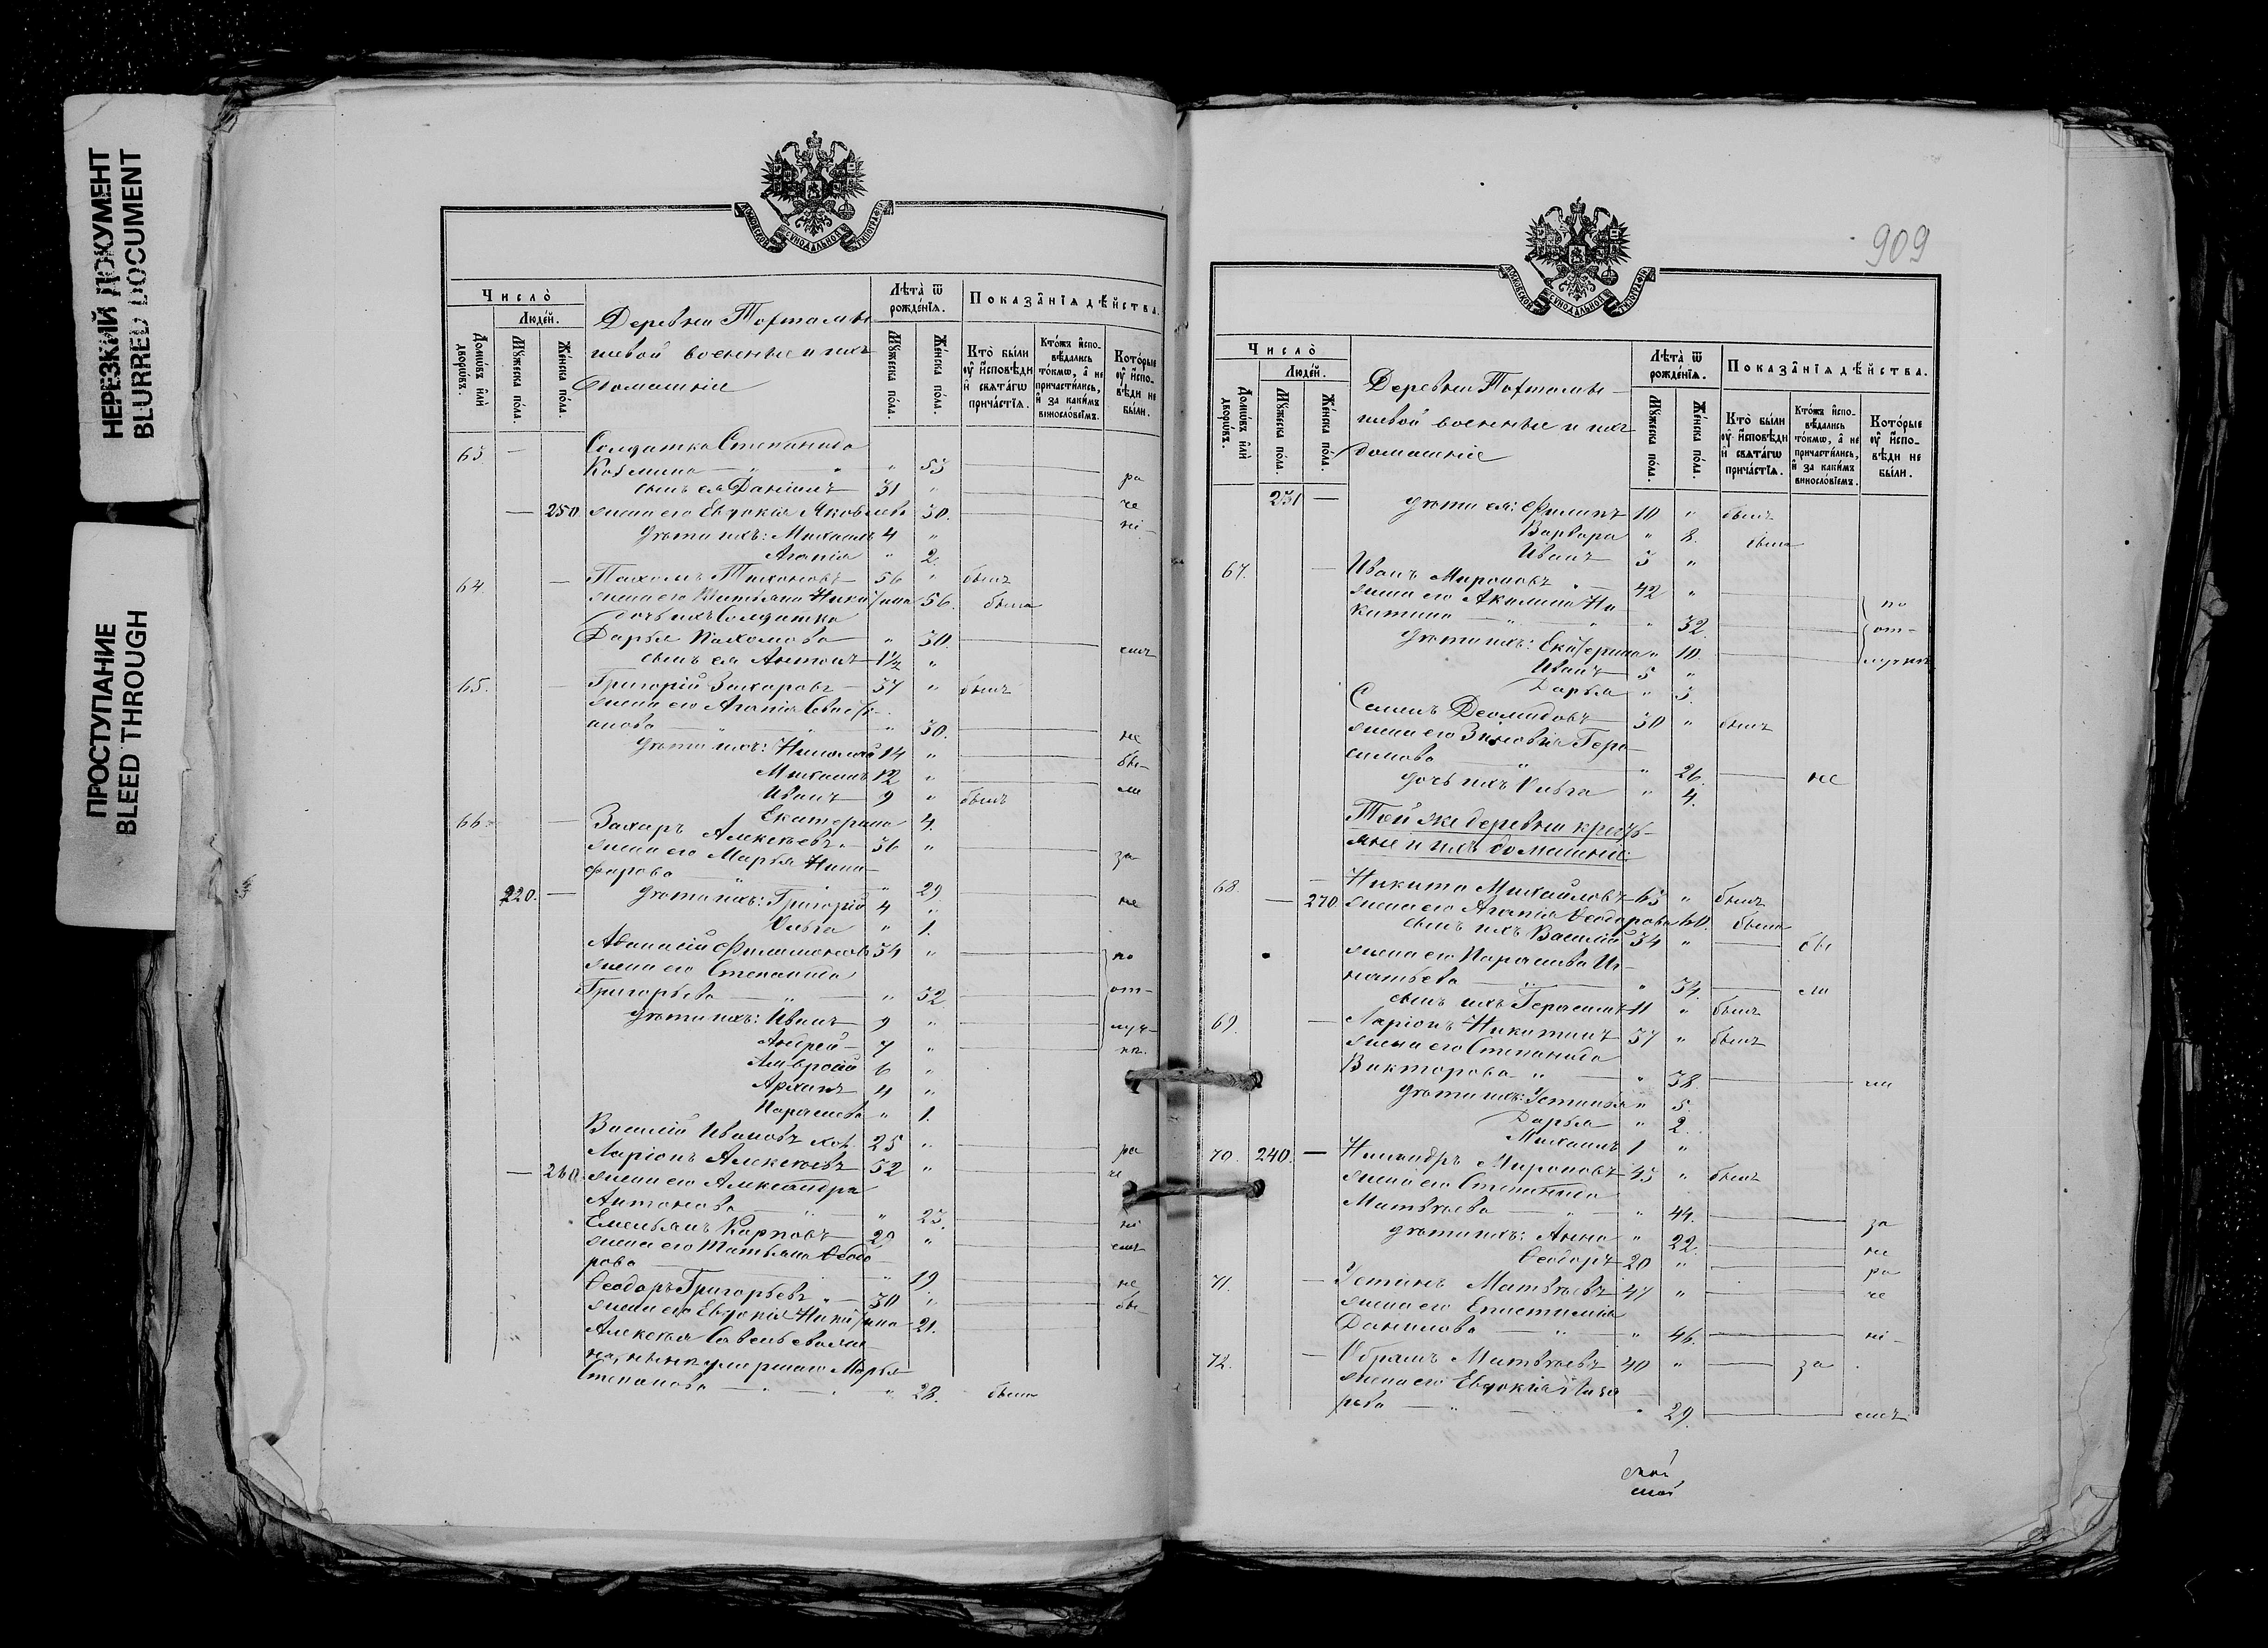 НЕРЕЗКИЙ ДОКУМЕНТ
BLURRED DOCUMENT
ПРОСТУПАНИЕ
BLEED THROUGH
МОСКОВСКОЙ СѴНОДАЛЬНОЙ ТѴПОГРАФІИ
Число̀
Люде́й.
Домѡ́въ и҆лѝ дворѡ́въ.
Мꙋ́жеска по́ла.
Же́нска по́ла.
Деревни
шевой военные и ихъ
домашніе
Лѣ́та ѿ рожде́нїѧ.
Мꙋ́жеска по́ла.
Же́нска по́ла.
Показа̑нїѧ дѣ́йства.
Кто̀ бы́ли ᲂу҆ и҆сповѣ́ди и҆ свѧта́гѡ прича́стїѧ.
Кто́жъ и҆сповѣ́дались то́кмѡ, а҆ не причасти́лись, и҆ за каки́мъ винословїемъ.
Кото́рые ᲂу҆ и҆сповѣ́ди не бы́ли.
63 — Солдатка Степанида
Козмина — " 53
сынъ ея Даніилъ 31 " ра
— 250 жена его Евдокія Яковлева 30. че
дѣти ихъ: Михаилъ 4 " ні-
Агапія " 2.
64. — Пахомъ Тихоновъ 56 " былъ
жена его Татьяна Никитина 56. была
дочь ихъ Солдатка
Дарья Пахомова " 30.
сынъ ея Антонъ 1½ "
65. — Григорій Захаровъ 37 " былъ
жена его Агапія
анова " 30. не
дѣти ихъ: Николай 14 " бы-
Михаилъ 12 " ли
Иванъ 9 " былъ
Екатерина 4.
66. — Захаръ Алексѣевъ 36 "
жена его Марья Ники- за-
форова " 29.
220. — дѣти ихъ: Григорій 4 " не
Ольга " 1.
Аѳанасій Филимоновъ 34 " по
жена его Степанида
Григорьева " 32 от-
дѣти ихъ: Иванъ 9 " луч-
Андрей 7 " кѣ.
Амвросій 6 "
Архипъ 4 "
Параскева " 1.
Василій Ивановъ хол. 25 " ра
Ларіонъ Алексѣевъ 32 " че
— 260. жена его Александра
Антонова " 23. ні
Емельянъ Карповъ 29 "
жена его Татьяна Ѳеодо-
рова " 19. не
Ѳеодоръ Григорьевъ 30 " бы-
жена его Евдокія Никитина 21.
Алексѣя Савельева
нынѣ умершаго Марья
Степанова " 28. была
909
МОСКОВСКОЙ СѴНОДАЛЬНОЙ ТѴПОГРАФІИ
Число̀
Люде́й.
Домѡ́въ и҆лѝ дворѡ́въ.
Мꙋ́жеска по́ла.
Же́нска по́ла.
Деревни
шевой военные и ихъ
домашніе
Лѣ́та ѿ рожде́нїѧ.
Мꙋ́жеска по́ла.
Же́нска по́ла.
Показа̑нїѧ дѣ́йства.
Кто̀ бы́ли ᲂу҆ и҆сповѣ́ди и҆ свѧта́гѡ прича́стїѧ.
Кто́жъ и҆сповѣ́дались то́кмѡ, а҆ не причасти́лись, и҆ за каки́мъ винословїемъ.
Кото́рые ᲂу҆ и҆сповѣ́ди не бы́ли.
231 — дѣти ея: Филипъ 10 " былъ
Варвара " 8. была
Иванъ 3 "
67. — Иванъ Мироновъ 42 " по
жена его Акилина Ни-
китина " 32. от-
дѣти ихъ: Екатерина " 10. лучкѣ
Иванъ 5 "
Дарья " 3.
Семенъ Деомидовъ 30 " былъ
жена его Зиновія Гера-
симова " 26. не
дочь ихъ Ольга " 4.
Той же деревни кресть-
яне и ихъ домашніе:
68. — Никита Михайловъ 65 " былъ
— 270 жена его Агапія Ѳеодорова 60. была
сынъ ихъ Василій 34 " бы
жена его Параскева Иг-
натьева " 34. ли
сынъ ихъ Герасимъ 11 " былъ
69. — Ларіонъ Никитинъ 37 " былъ
жена его Степанида
Викторова " 38.
дѣти ихъ: Устинья " 5.
Дарья " 2.
Михаилъ 1 "
70. 240. — Никандръ Мироновъ 45 " былъ
жена его Степанида
Матвѣева " 44. за
дѣти ихъ: Анна " 22. не
Ѳеодоръ 20 " ра
71. — Устинъ Матвѣевъ 47 " че
жена его Епистимія
Данилова " 46. ні-
72. — Абрамъ Матвѣевъ 40 " за
жена его Евдокія Лаза
рева " 29.